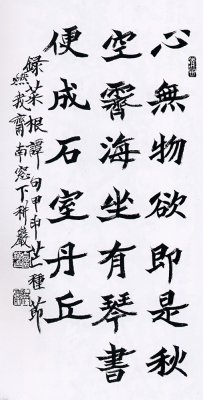 心無物欲即是秋
空霽海坐有琴書
便成石室丹丘
錄菜根譚句甲申芒種節
我齋南窓下